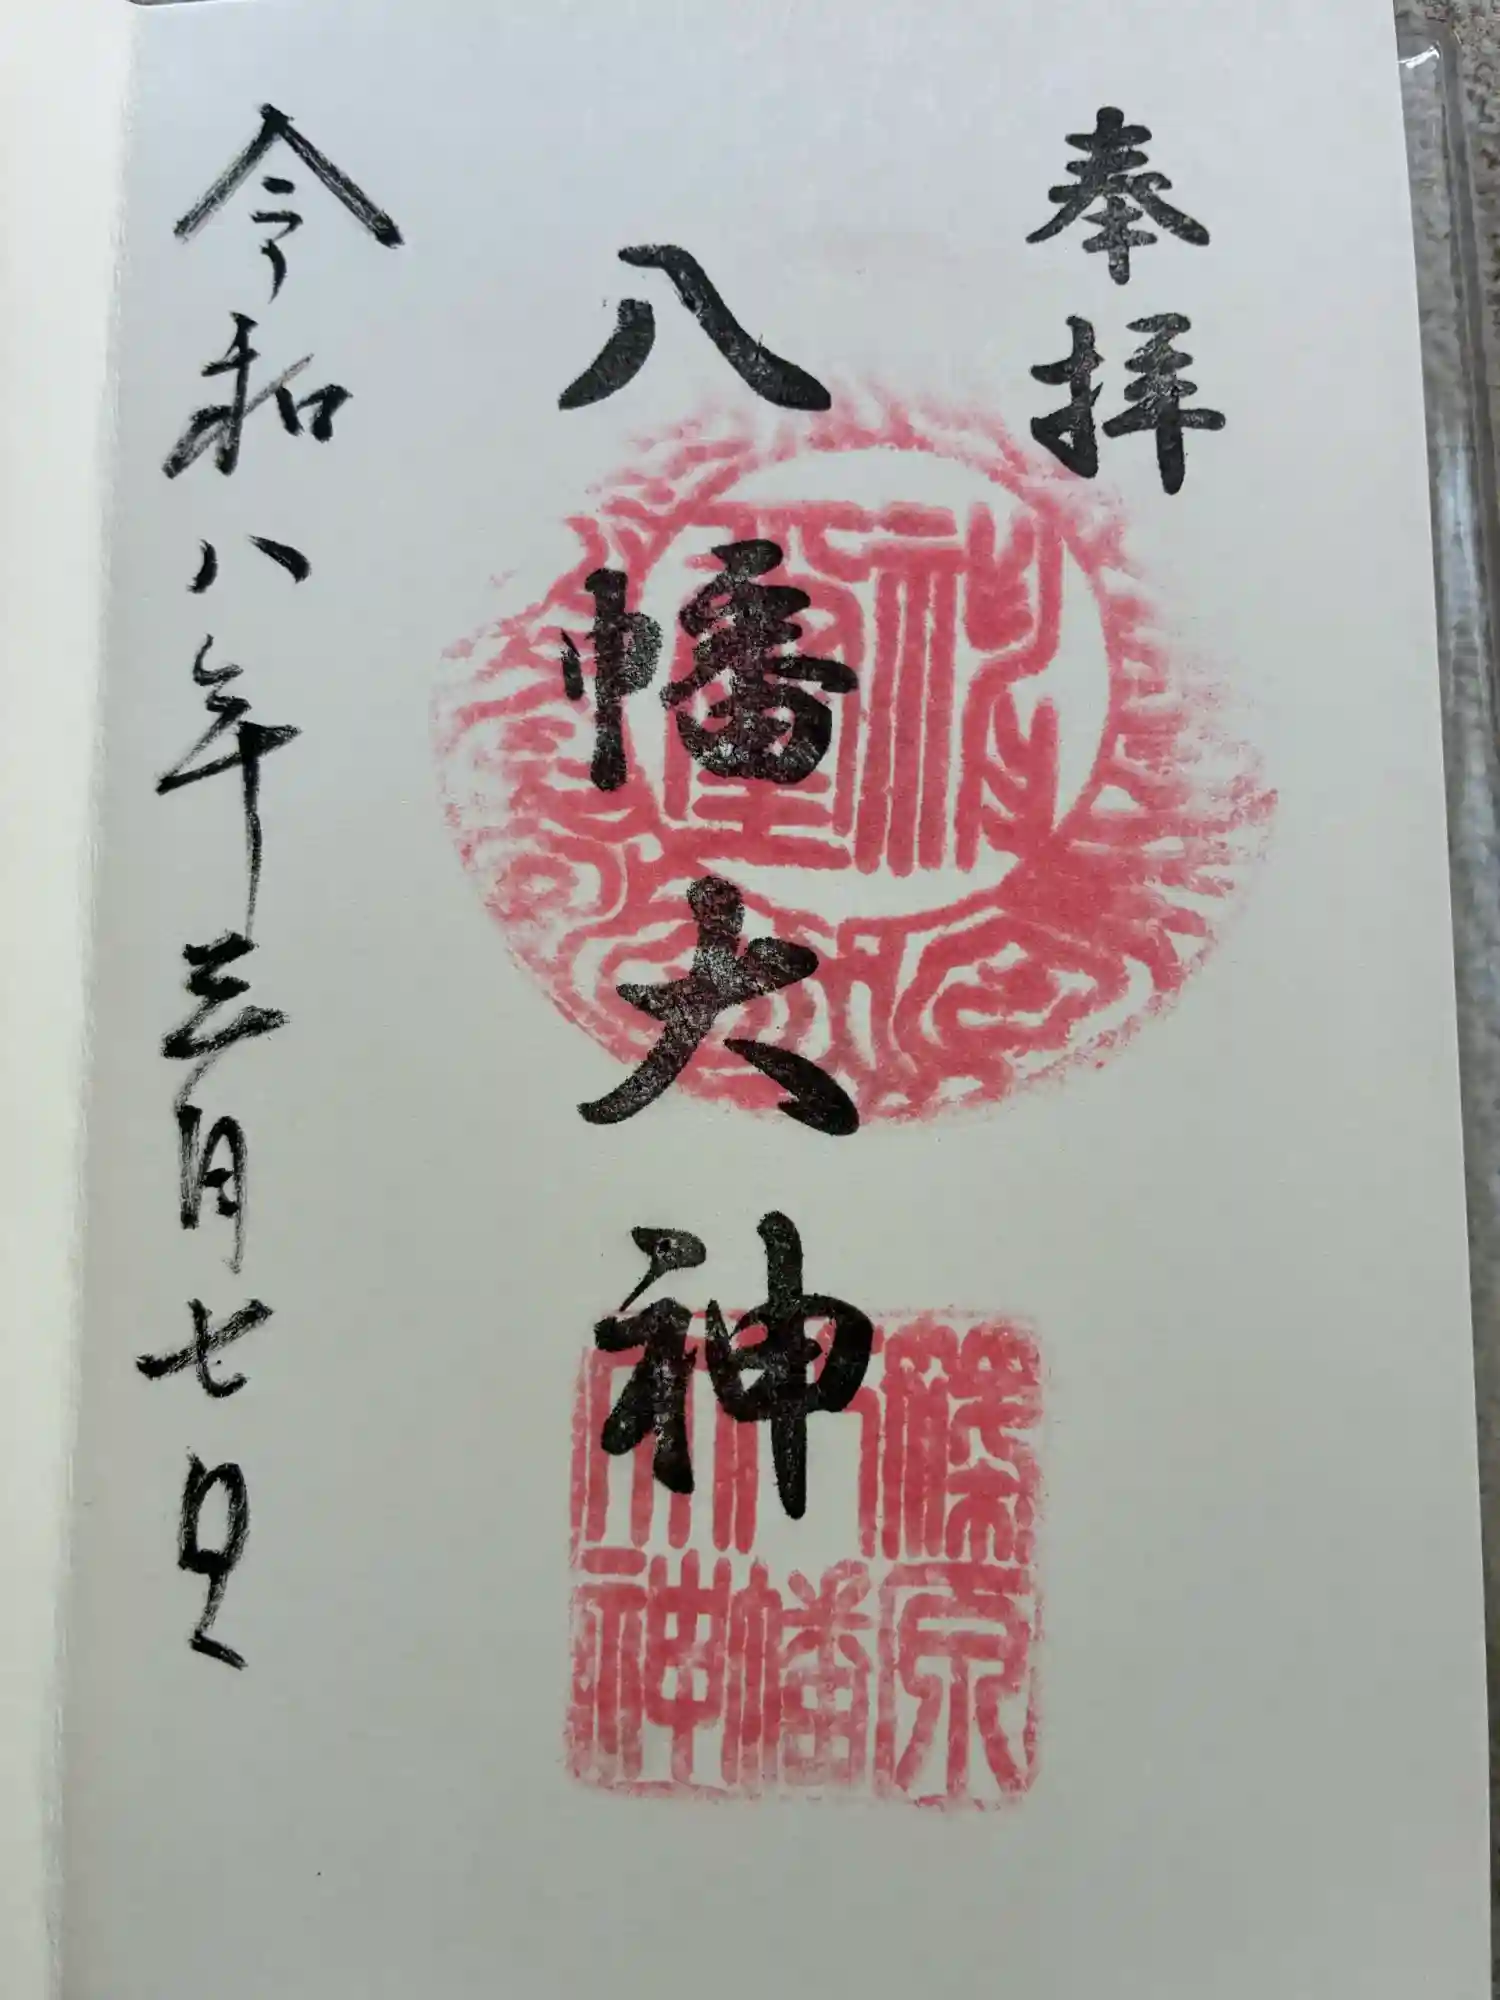 奉拝
八幡大神
令和八年三月七日
篠原
八幡
大神